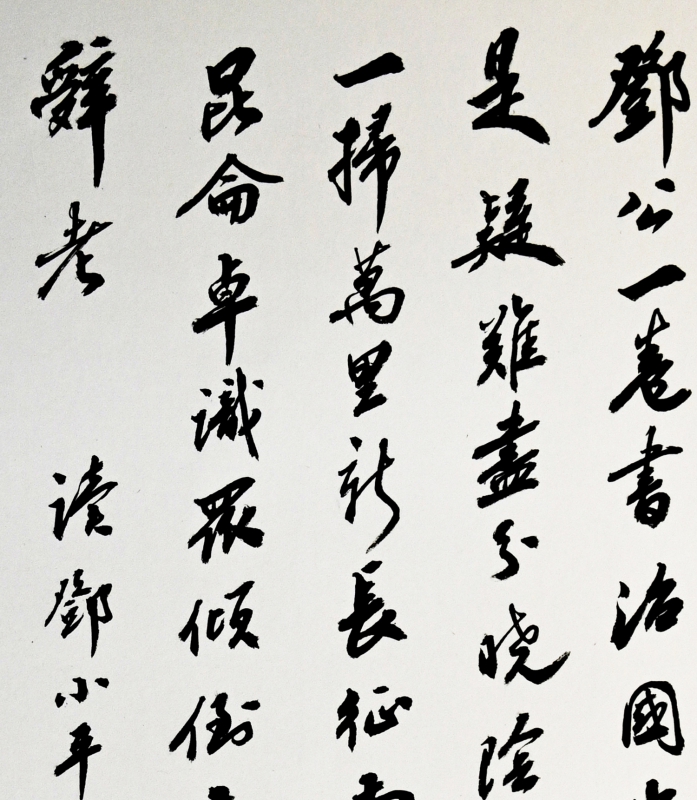 鄧公一卷書治國
是疑難盡分曉陰
一掃萬里新長征
昆侖卓識眾傾倒
辭老 讀鄧小平